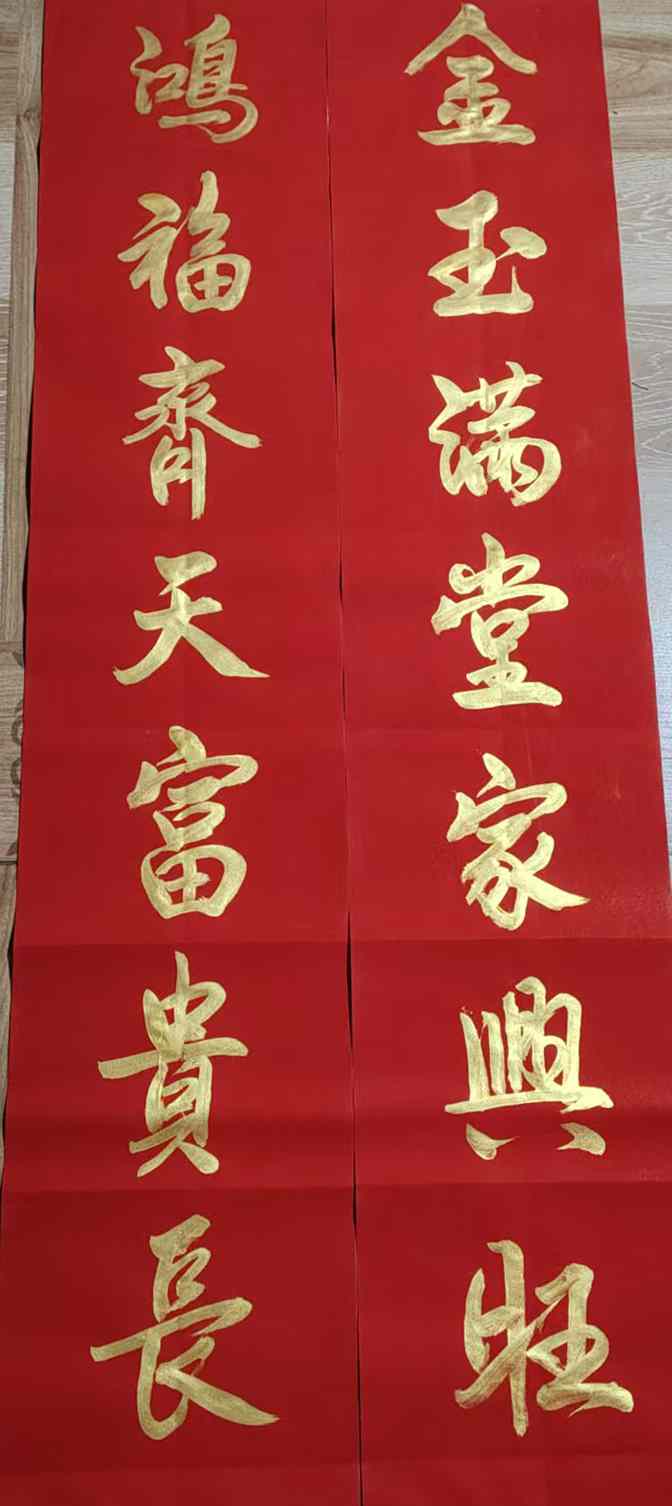 金玉满堂家興旺
鴻福齊天富貴長